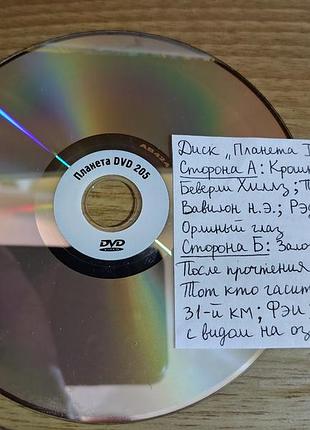 Планета DVD 205
DVD
VIDEO
Диск „Планета
Сторона А: Крошк
Беверли Хиллз;
Вавилон н.э.; Рэ
Орлиный глаз
Сторона Б: Зало
После прочтения
Тот кто гасит
31-й км; Фэй
с видом на оз